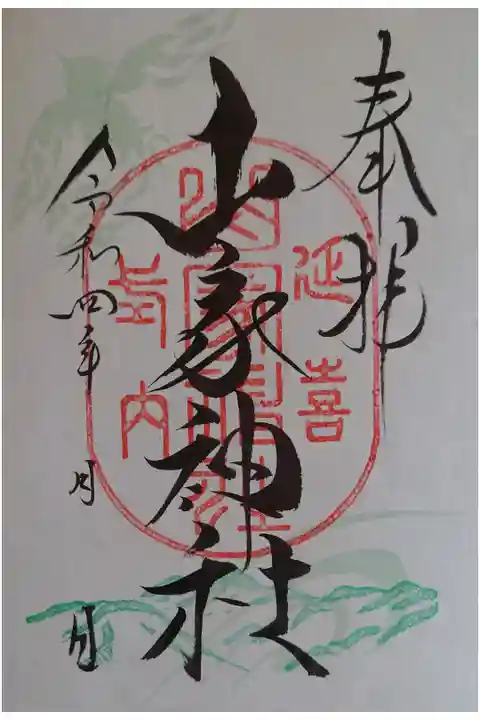 奉拝
延喜
山家神社
山家神社
式内
令和四年 月 日